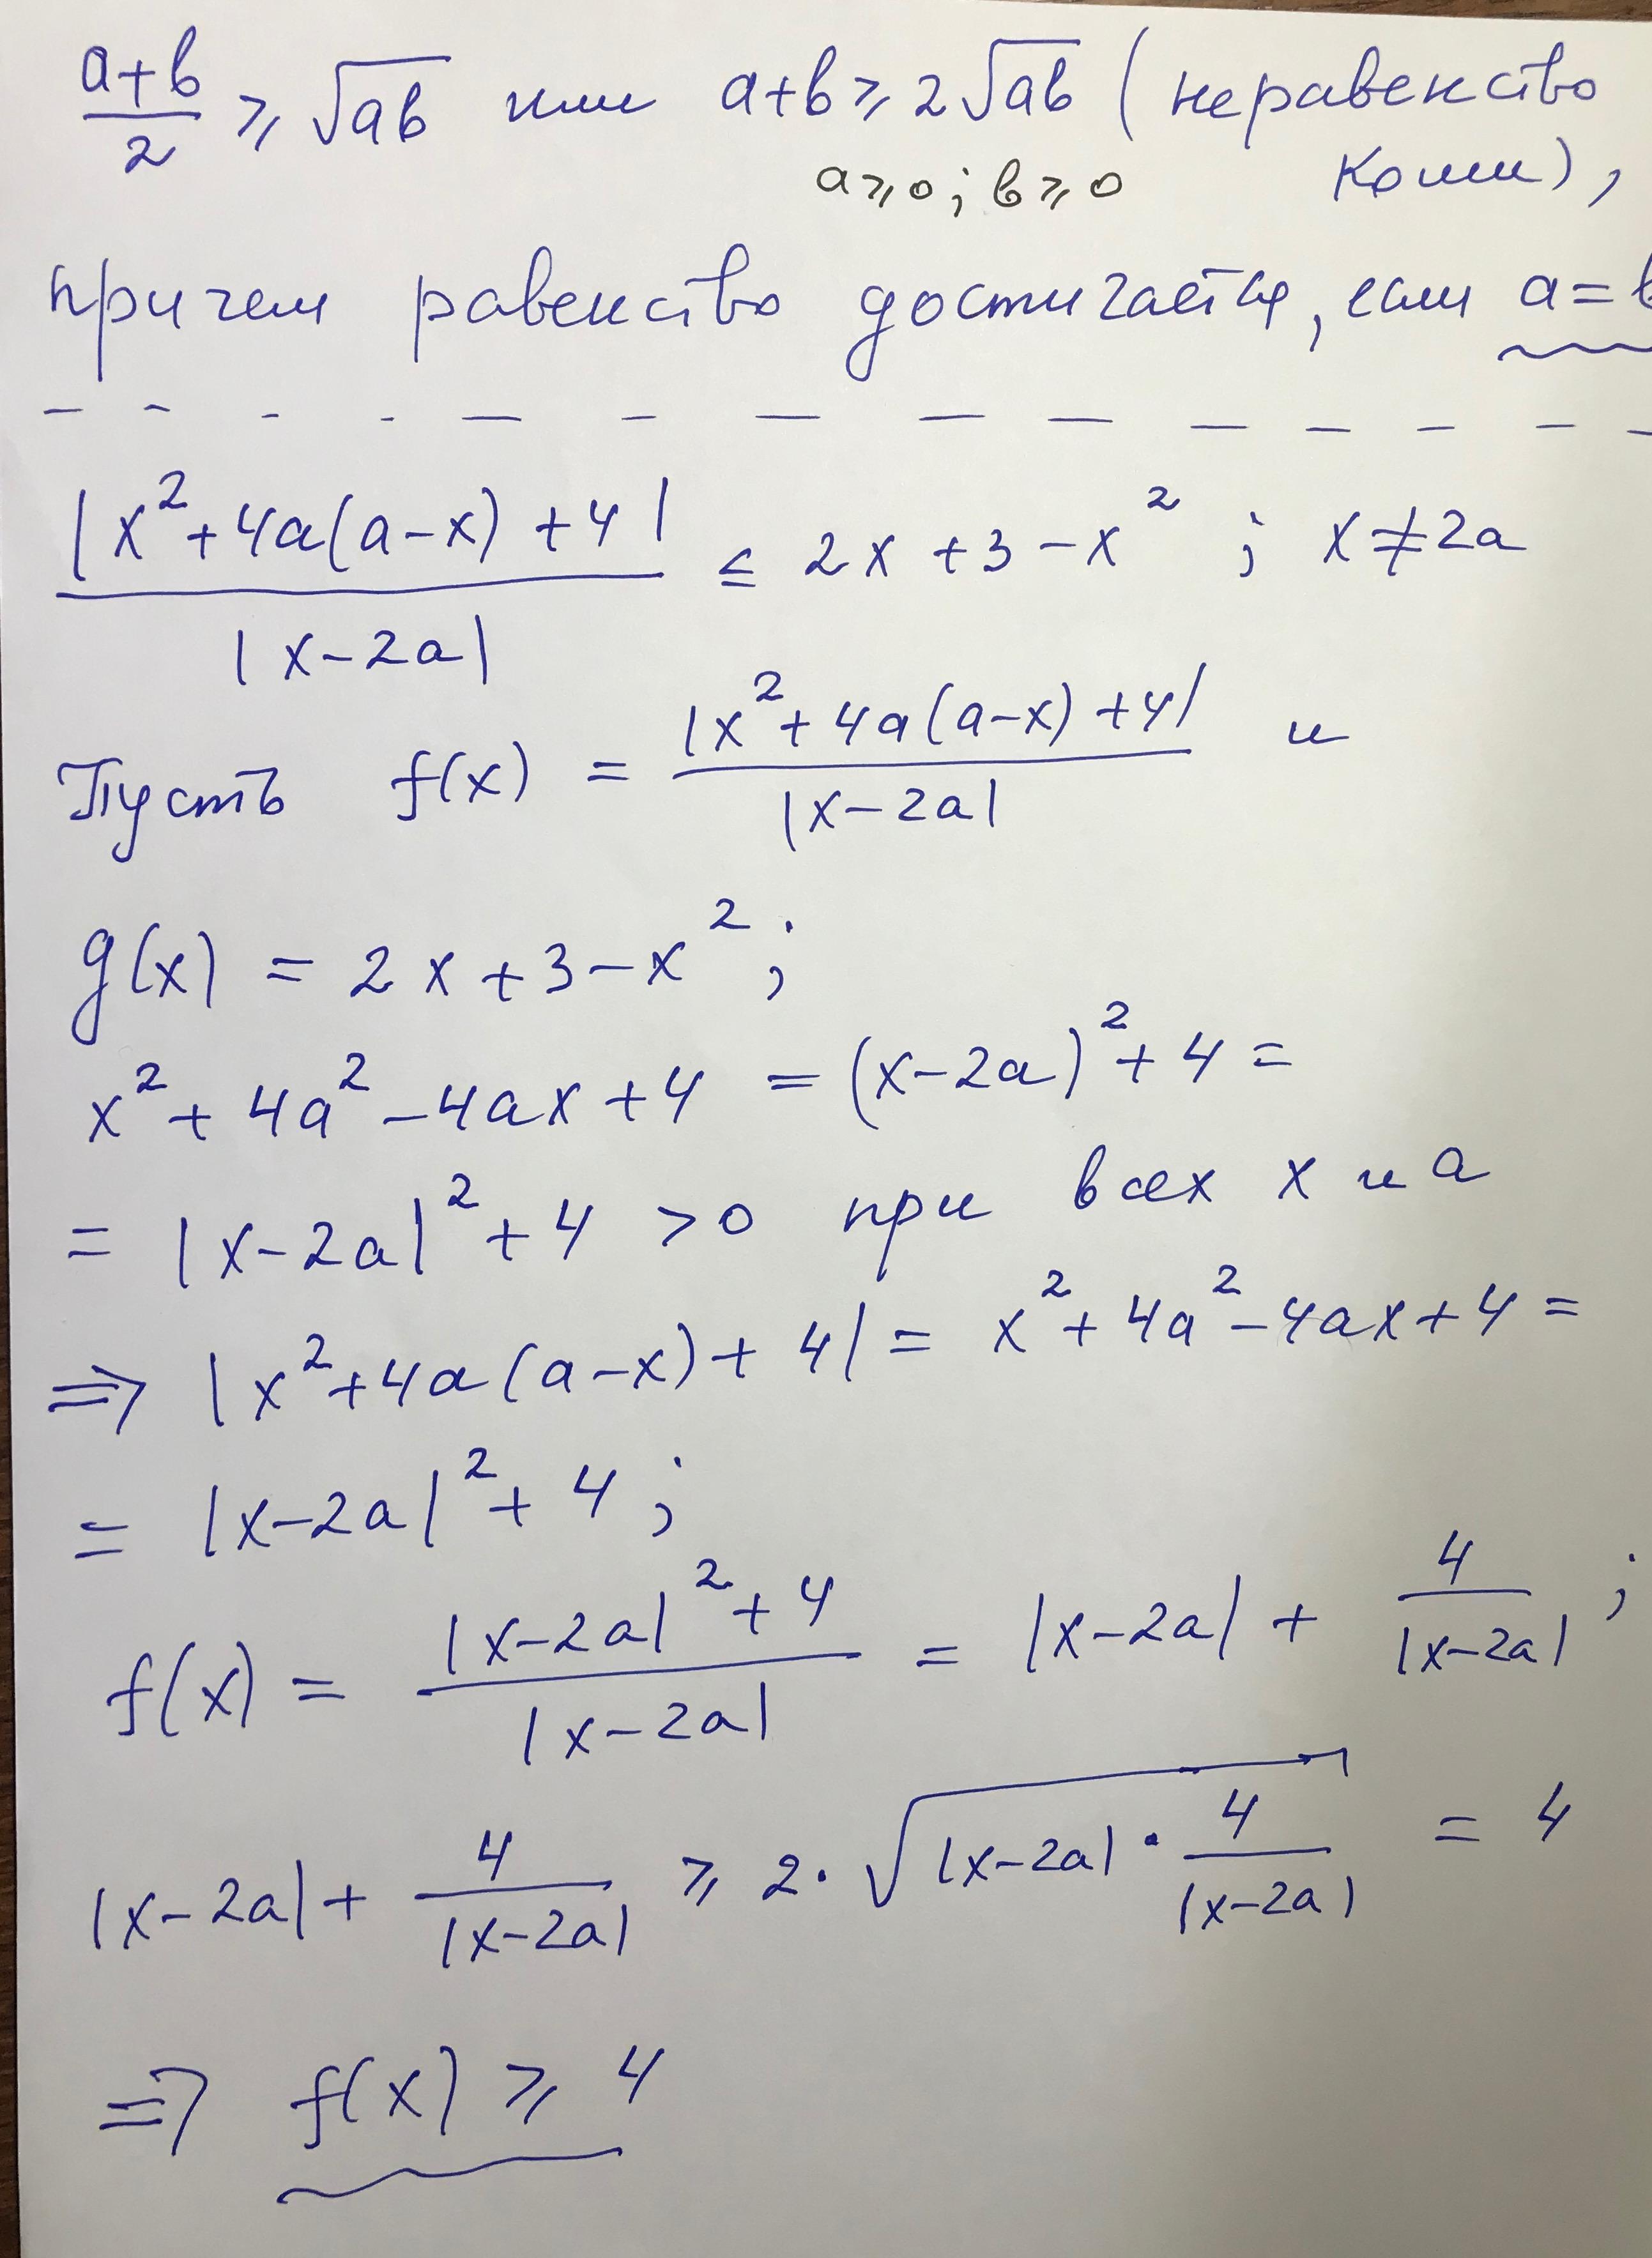 (a+b)/2 ⩾ √(ab) или a+b ⩾ 2√(ab) (неравенство
a⩾0; b⩾0 Коши),
причем равенство достигается, если a=b
|x²+4a(a-x)+4| / |x-2a| ≤ 2x+3-x² ; x≠2a
Пусть f(x) = |x²+4a(a-x)+4| / |x-2a| и
g(x) = 2x+3-x² ;
x²+4a²-4ax+4 = (x-2a)²+4 =
= |x-2a|²+4 >0 при всех x и a
⇒ |x²+4a(a-x)+4| = x²+4a²-4ax+4 =
= |x-2a|²+4 ;
f(x) = (|x-2a|²+4) / |x-2a| = |x-2a| + 4/|x-2a| ;
|x-2a| + 4/|x-2a| ⩾ 2·√(|x-2a|·4/|x-2a|) = 4
⇒ f(x) ⩾ 4